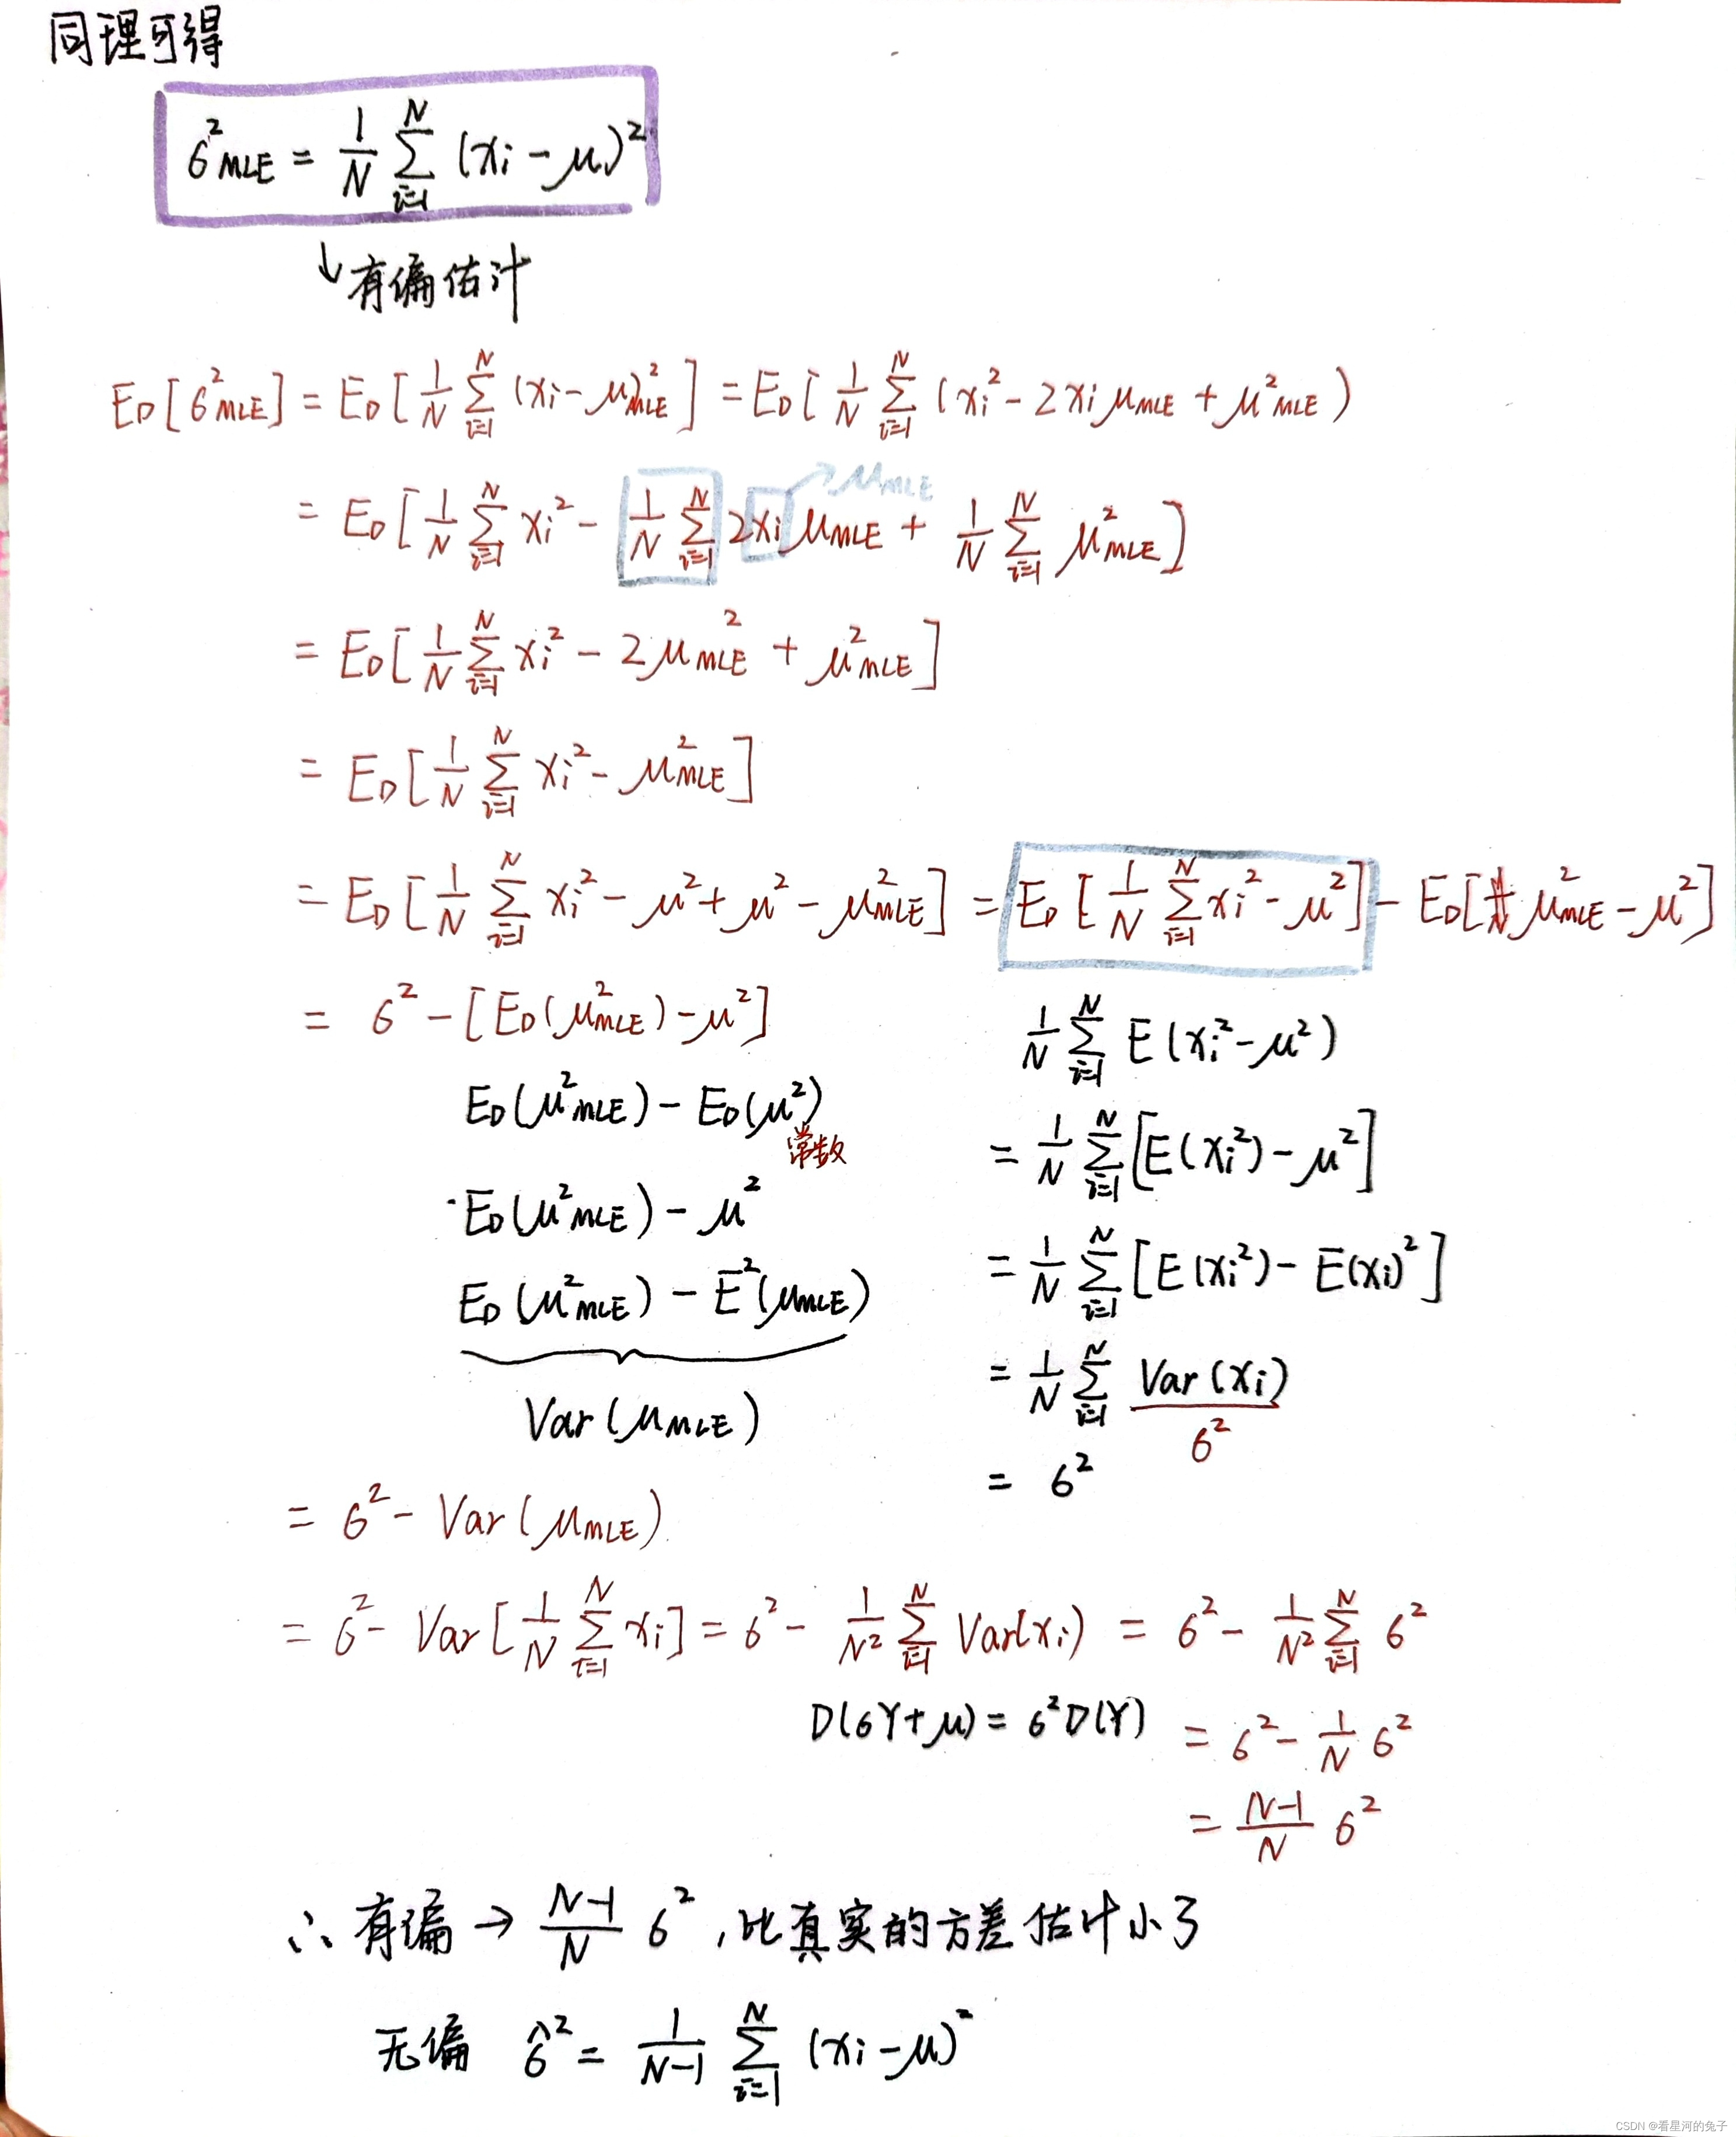 同理可得
σ²MLE = 1/N ∑_{i=1}^{N} (xi - μ)²
↓ 有偏估计
E_D[σ²MLE] = E_D[1/N ∑_{i=1}^{N} (xi - μMLE)²] = E_D[1/N ∑_{i=1}^{N} (xi² - 2xi μMLE + μ²MLE)
→ μMLE
= E_D[1/N ∑_{i=1}^{N} xi² - 1/N ∑_{i=1}^{N} 2xi μMLE + 1/N ∑_{i=1}^{N} μ²MLE]
= E_D[1/N ∑_{i=1}^{N} xi² - 2μ²MLE + μ²MLE]
= E_D[1/N ∑_{i=1}^{N} xi² - μ²MLE]
= E_D[1/N ∑_{i=1}^{N} xi² - μ² + μ² - μ²MLE] = E_D[1/N ∑_{i=1}^{N} xi² - μ²] - E_D[μ²MLE - μ²]
= σ² - [E_D(μ²MLE) - μ²]
E_D(μ²MLE) - E_D(μ²)
常数
E_D(μ²MLE) - μ²
E_D(μ²MLE) - E²(μMLE)
Var(μMLE)
1/N ∑_{i=1}^{N} E(xi² - μ²)
= 1/N ∑_{i=1}^{N} [E(xi²) - μ²]
= 1/N ∑_{i=1}^{N} [E(xi²) - E(xi)²]
= 1/N ∑_{i=1}^{N} Var(xi)
σ²
= σ²
= σ² - Var(μMLE)
= σ² - Var[1/N ∑_{i=1}^{N} xi] = σ² - 1/N² ∑_{i=1}^{N} Var(xi) = σ² - 1/N² ∑_{i=1}^{N} σ²
D(σY+μ) = σ²D(Y)
= σ² - 1/N σ²
= (N-1)/N σ²
∴ 有偏 → (N-1)/N σ², 比真实的方差估计小了
无偏 σ̂² = 1/(N-1) ∑_{i=1}^{N} (xi - μ)²
CSDN @看星河的兔子